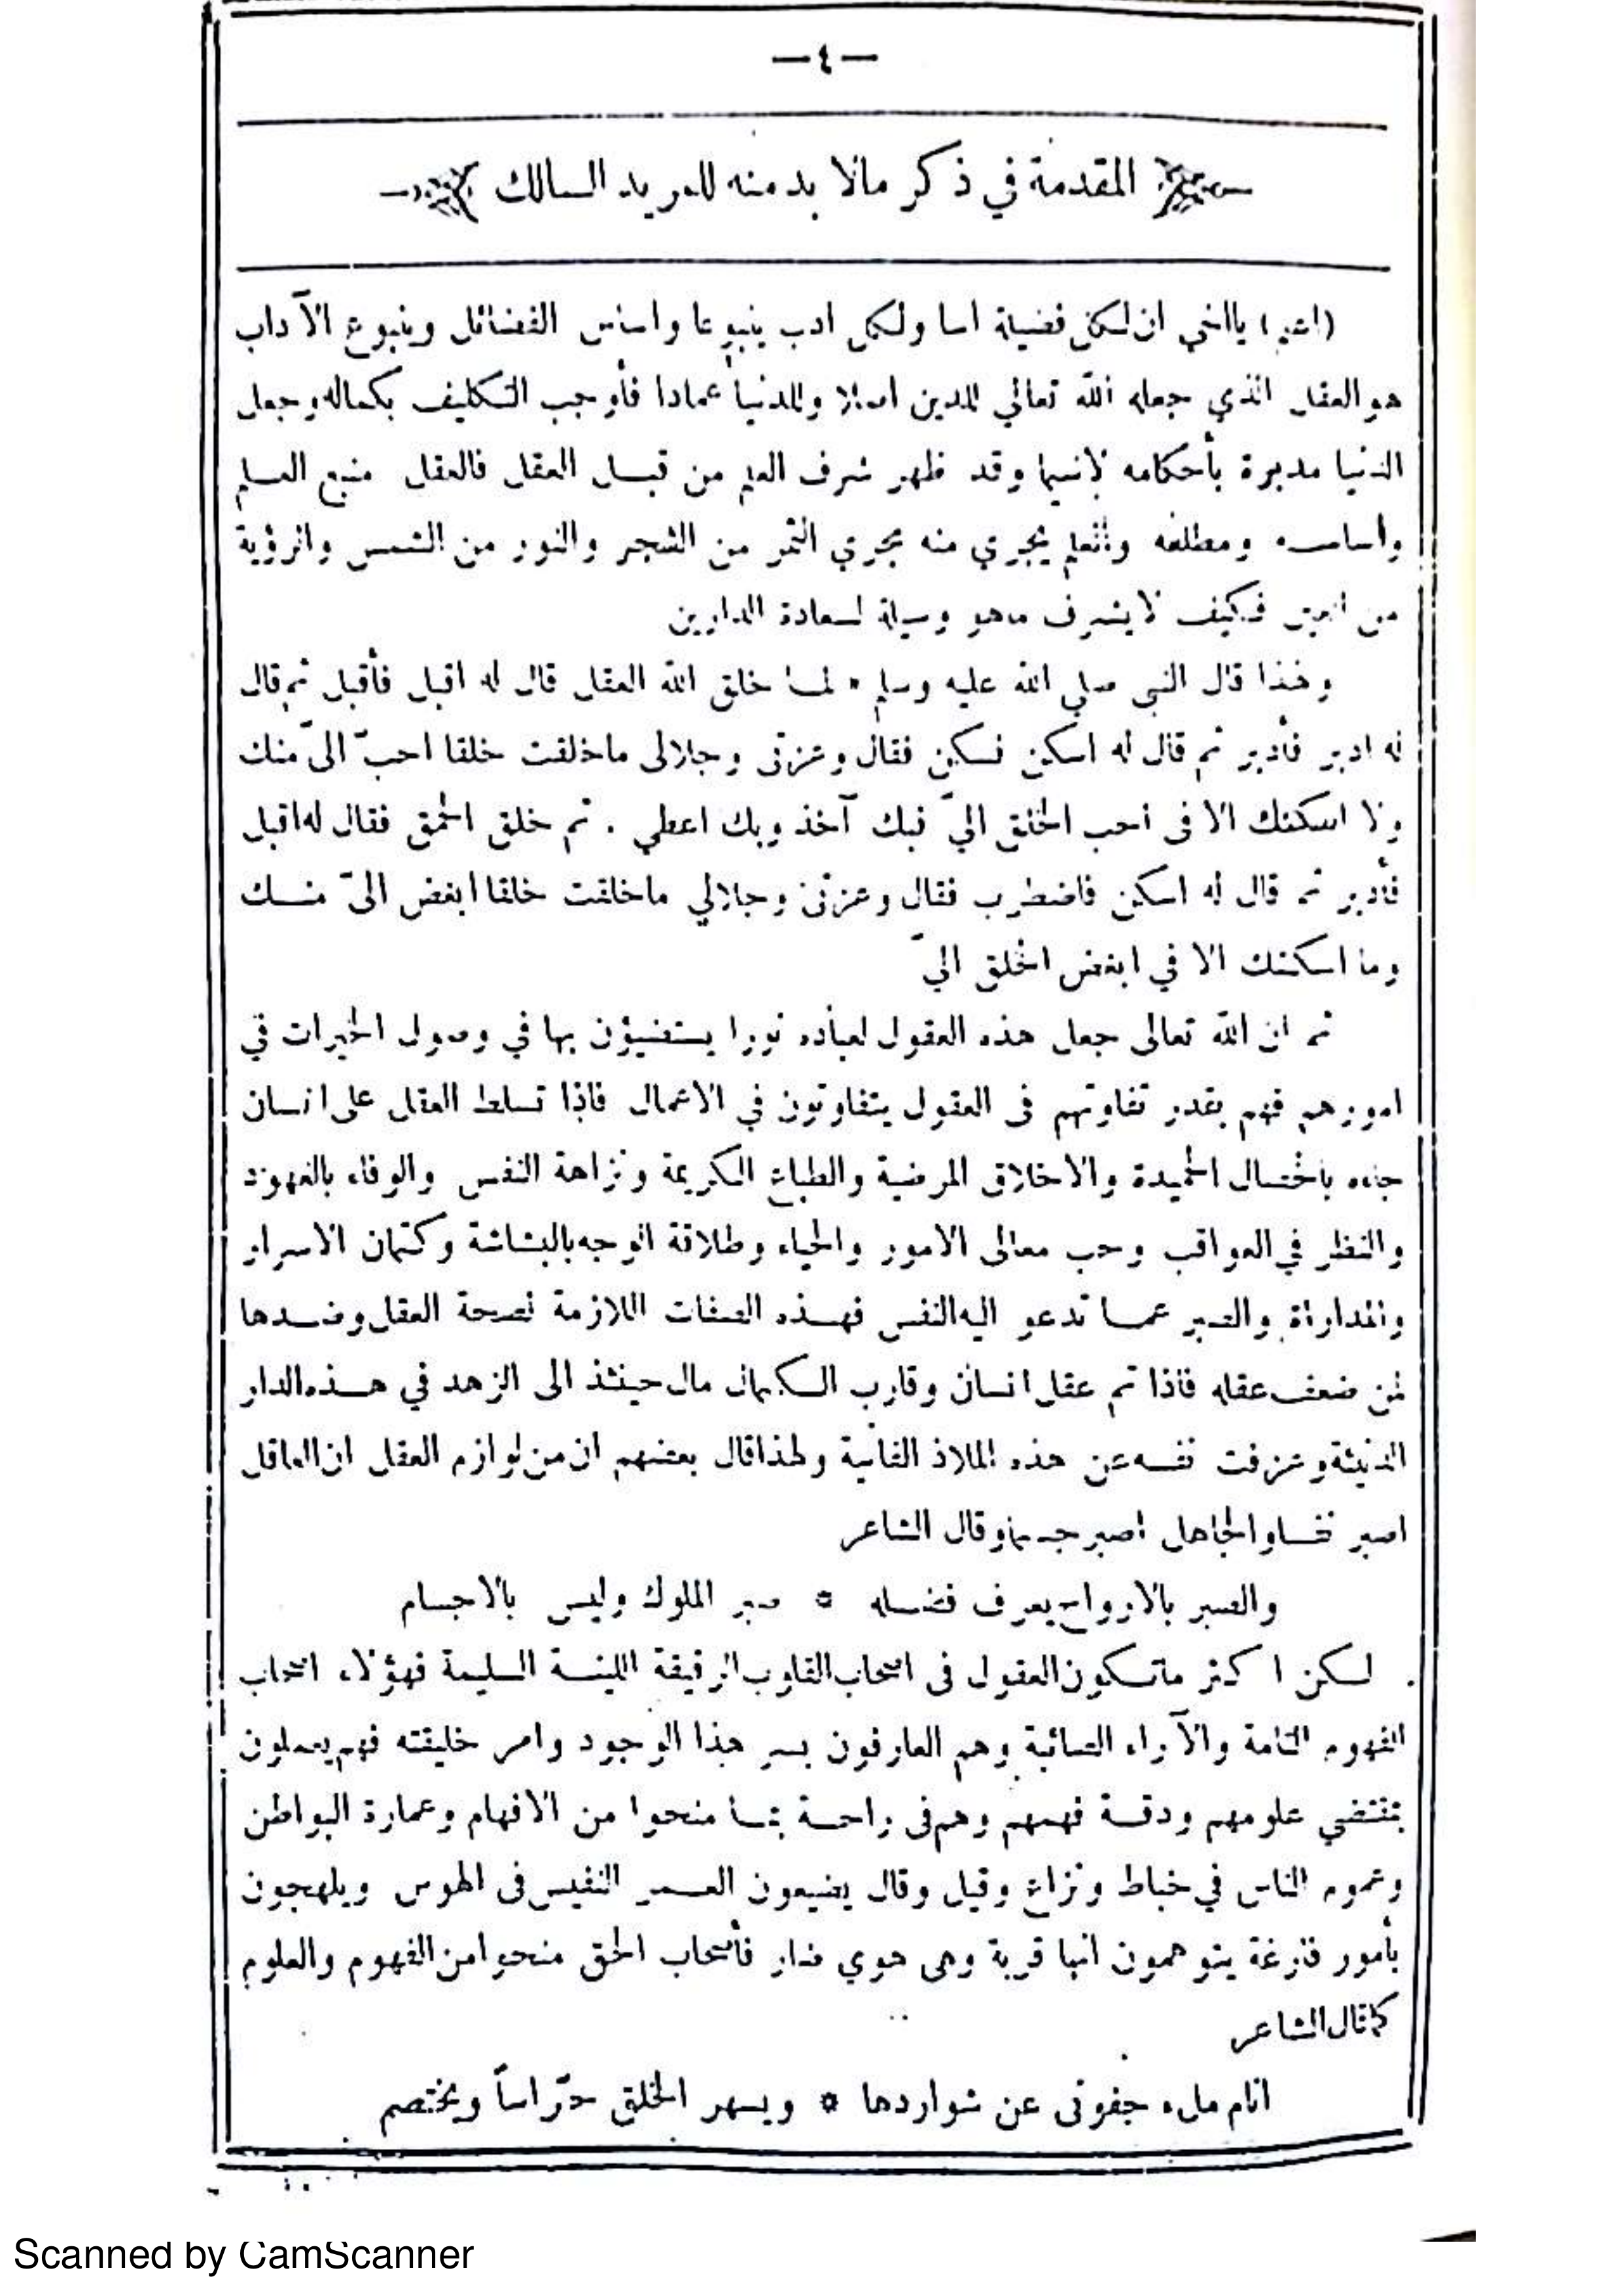 —٤—
المقدمة في ذكر مالا بد منه للمريد السالك
(اعلم) يااخي ان لكل فضيلة اسا ولكل ادب ينبوعا واساس الفضائل وينبوع الآداب
هو العقل الذي جعله الله تعالي للدين اصلا وللدنيا عمادا فأوجب التكليف بكماله وجعل
الدنيا مدبرة بأحكامه لاسيما وقد ظهر شرف العلم من قبل العقل فالعقل منبع العلم
وأساسه ومطلعه والعلم يجري منه مجري الثمر من الشجر والنور من الشمس والرؤية
من العين فكيف لا يشرف ماهو وسيلة لسعادة الدارين
ولهذا قال النبي صلي الله عليه وسلم « لما خلق الله العقل قال له اقبل فأقبل ثم قال
له ادبر فأدبر ثم قال له اسكن فسكن فقال وعزتى وجلالى ماخلقت خلقا احبّ الىّ منك
ولا اسكنك الا فى احب الخلق اليّ فبك آخذ وبك اعطي . ثم خلق الحمق فقال له اقبل
فأدبر ثم قال له اسكن فاضطرب فقال وعزتى وجلالي ماخلقت خلقا ابغض الىّ منك
وما اسكنك الا في ابغض الخلق اليّ
ثم ان الله تعالى جعل هذه العقول لعباده نورا يستضيؤن بها في وصول الخيرات في
امورهم فهم بقدر تفاوتهم فى العقول يتفاوتون في الاعمال فاذا تسلط العقل على انسان
جاءه بالخصال الحميدة والاخلاق المرضية والطباع الكريمة ونزاهة النفس والوفاء بالعهود
والنظر في العواقب وحب معالى الامور والحياء وطلاقة الوجه بالبشاشة وكتمان الاسرار
والمداراة والصبر عما تدعو اليه النفس فهذه الصفات اللازمة لصحة العقل وضدها
لمن ضعف عقله فاذا تم عقل انسان وقارب الكمال مال حينئذ الى الزهد في هذه الدار
الدنيئة وعزفت نفسه عن هذه الملاذ الفانية ولهذا قال بعضهم ان من لوازم العقل ان العاقل
اصبر نفسا والجاهل اصبر جسما وقال الشاعر
والصبر بالارواح يعرف فضله * صبر الملوك وليس بالاجسام
لكن اكثر ماتكون العقول فى اصحاب القلوب الرقيقة اللينة السليمة فهؤلاء اصحاب
الفهوم التامة والآراء الصائبة وهم العارفون بسر هذا الوجود وامر خليقته فهم يعملون
بمقتضي علومهم ودقة فهمهم وهم فى راحة بما منحوا من الافهام وعمارة البواطن
وعموم الناس في خباط ونزاع وقيل وقال يضيعون العمر النفيس فى الهوس ويلهجون
بأمور فارغة يتوهمون انها قربة وهى هوي ضار فأصحاب الحق منحوا من الفهوم والعلوم
كما قال الشاعر
انام ملء جفونى عن شواردها * ويسهر الخلق حرّاساً ويختصم
Scanned by CamScanner